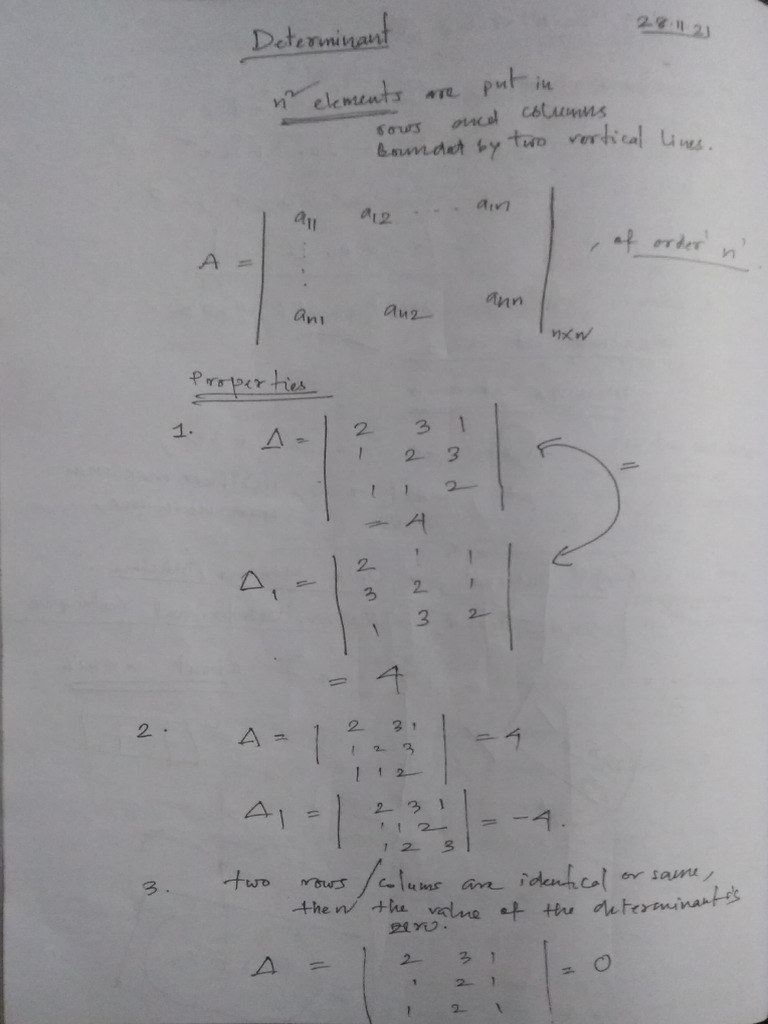 28.11.21
Determinant
n² elements are put in
rows and columns
Bounded by two vertical lines.
a11 a12 .... a1n
A = , of order 'n'
an1 an2 ann
n×n
Properties
1. Δ = 2 3 1
1 2 3
1 1 2
=
= 4
Δ1 = 2 1 1
3 2 1
1 3 2
= 4
2. Δ = 2 3 1 = 4
1 2 3
1 1 2
Δ1 = 2 3 1 = -4.
1 1 2
1 2 3
3. two rows/colums are identical or same,
then the value of the determinant is
zero.
Δ = 2 3 1 = 0
1 2 1
1 2 1